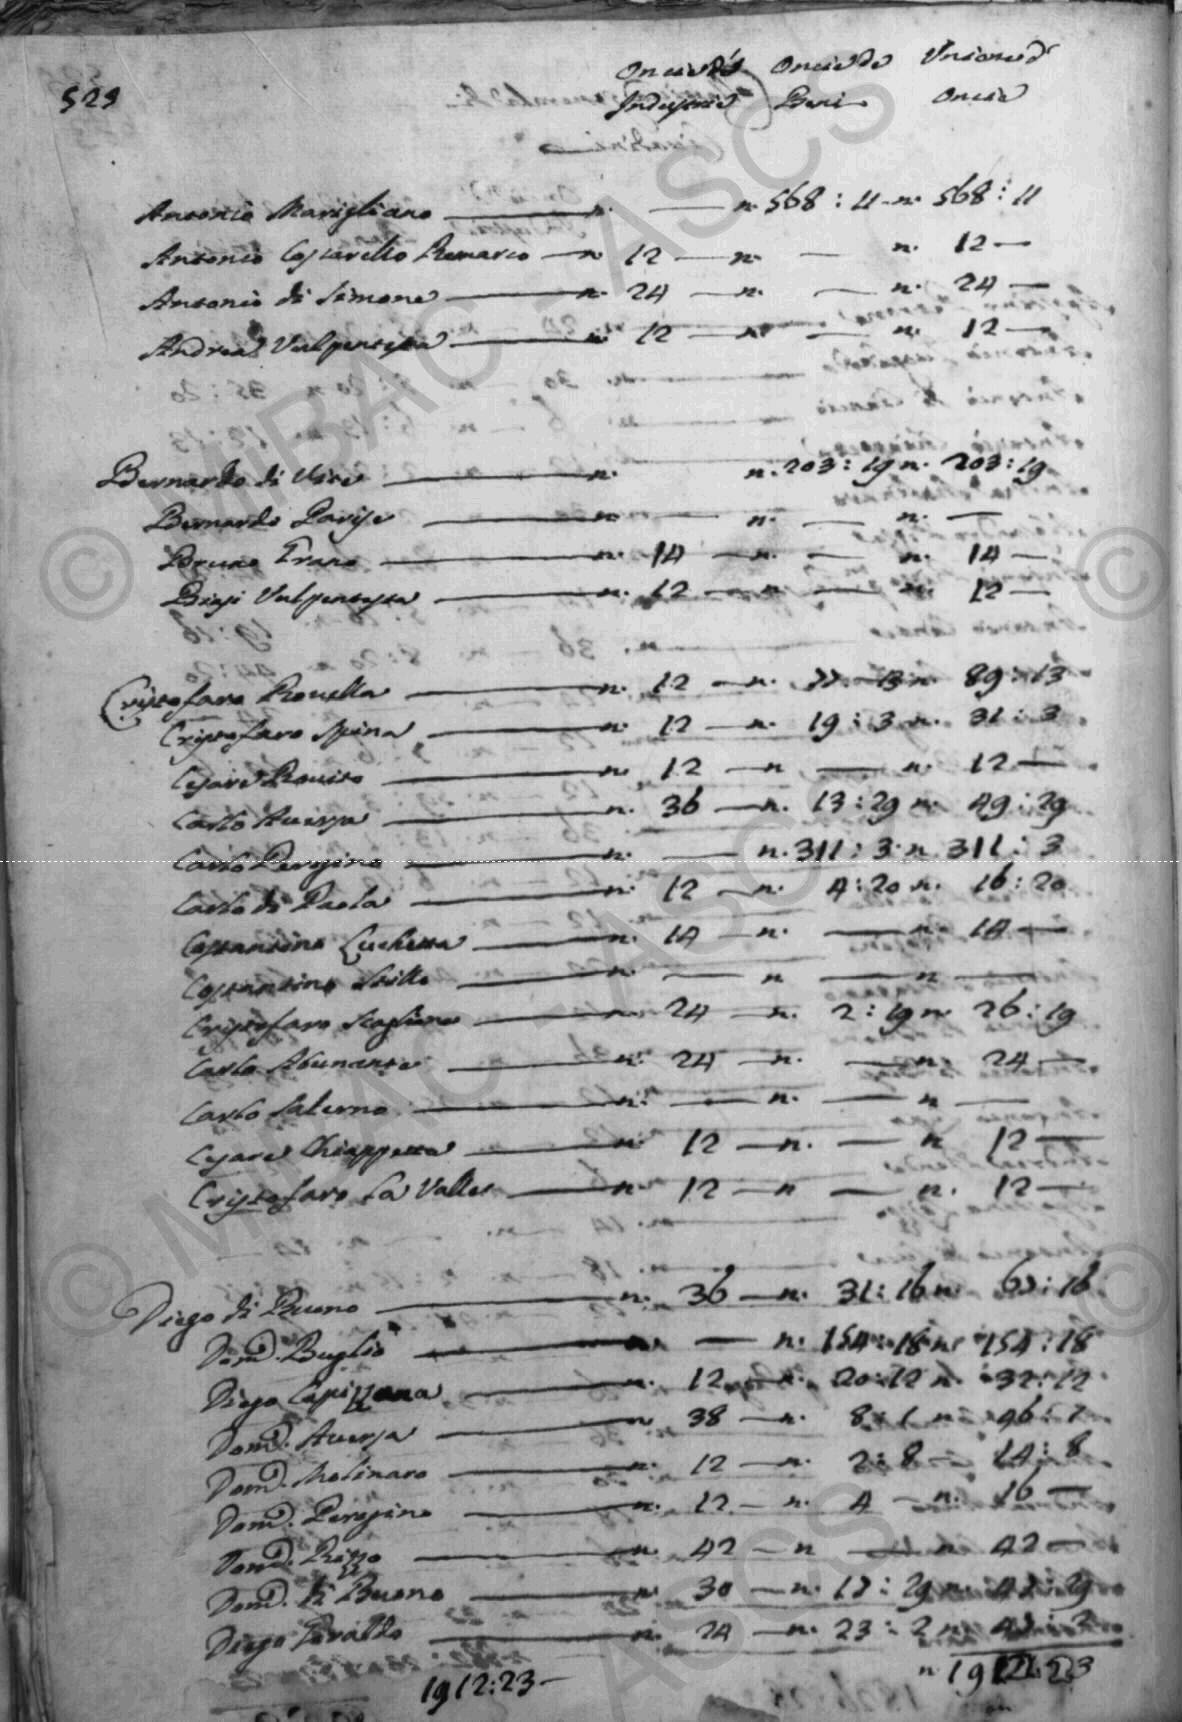 529
Oncie d' Oncie de Unione d'
Industrie Beni Oncie
Antonio Marigliano n. — n. 568 : 11 n. 568 : 11
Antonio Costarello Remarco n. 12 — n. — n. 12 —
Antonio di Simone n. 24 — n. — n. 24 —
Andrea Vulpentesta n. 12 — n. — n. 12 —
Bernardo di Vite n. n. 203 : 19 n. 203 : 19
Bernardo Parise n. — n. — n. —
Bruno Trano n. 14 — n. — n. 14 —
Biasi Vulpentesta n. 12 — n. — n. 12 —
Cristofaro Rouella n. 12 — n. 77 : 13 n. 89 : 13
Cristofaro Spina n. 12 — n. 19 : 3 n. 31 : 3
Cesare Rouito n. 12 — n — n. 12 —
Carlo Auersa n. 36 — n. 13 : 29 n. 49 : 29
Carlo Perugino n. — n. 311 : 3 n. 311 : 3
Carlo di Paola n. 12 — n. 4 : 20 n. 16 : 20
Costantino Luchetta n. 14 — n. — n. 14 —
Costantino Stillo n. — n — n —
Cristofaro Scaglione n. 24 — n. 2 : 19 n. 26 : 19
Carlo Abunante n. 24 — n. — n. 24 —
Carlo Salerno n. — n. — n —
Cesare Chiappetta n. 12 — n. — n 12 —
Cristofaro La Valle n. 12 — n — n. 12 —
Diego di Buono n. 36 — n. 31 : 16 n. 67 : 16
Dom.º Buglio n. — n. 154 : 18 n. 154 : 18
Diego Capizzana n. 12 — n. 20 : 12 n. 32 : 12
Dom.º Auersa n 38 — n. 8 : 7 n 46 : 7
Dom.º Molinaro n. 12 — n. 2 : 8 — 14 : 8
Dom.º Perugino n. 12 — n. 4 — n. 16 —
Dom.º Rizzo n. 42 — n — n 42 —
Dom.º di Buono n. 30 — n. 17 : 29 n. 47 : 29
Diego Toraldo n. 24 — n. 23 : 2 n. 47 : 2
1912 : 23 — n. 1912 : 23
© MIBAC - ASCS
© MIBAC - ASCS